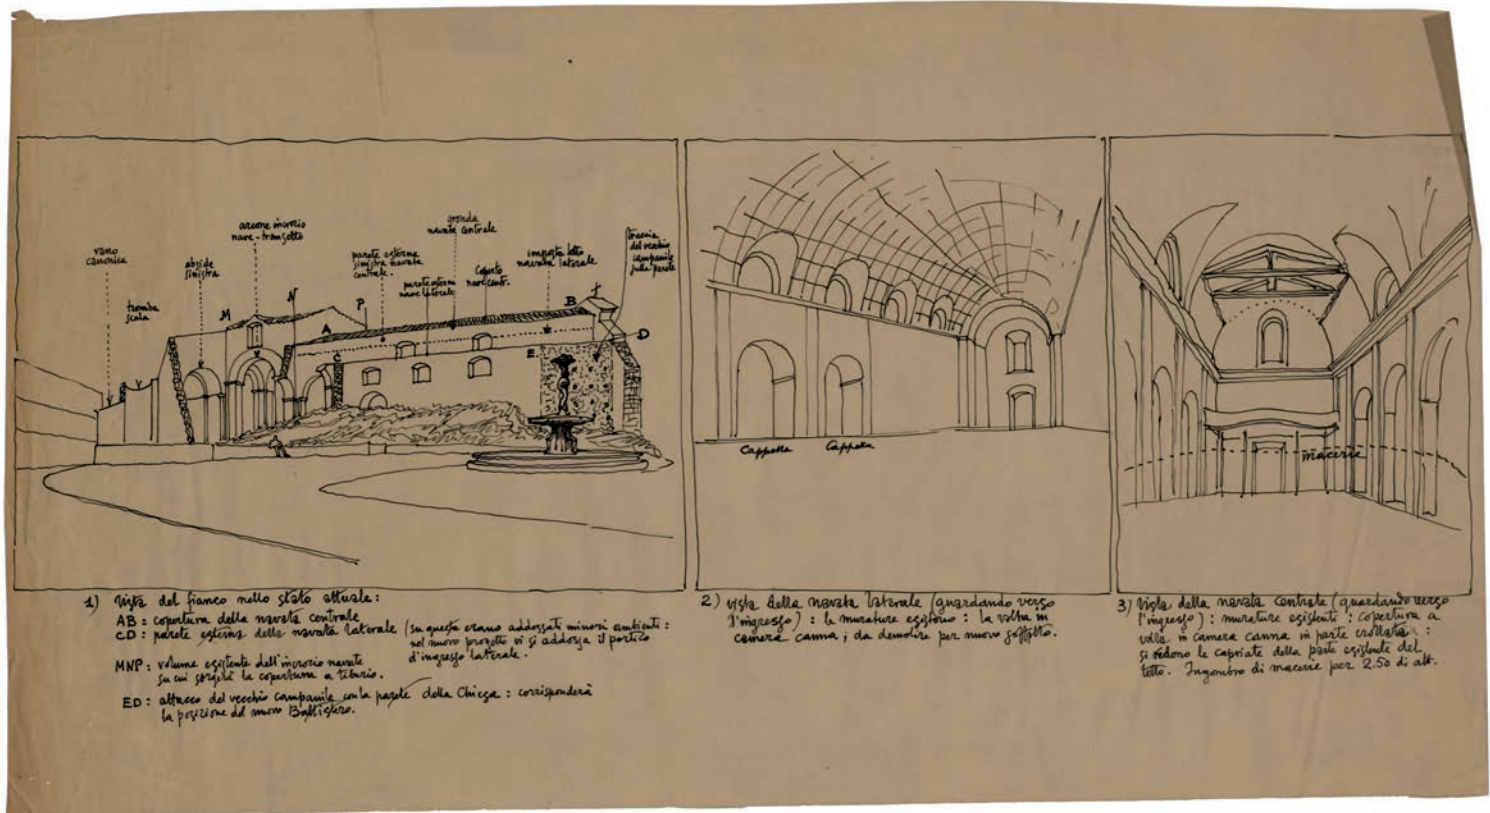 vano
canonica
tromba
scala
abside
sinistra
M
arcone incrocio
nave-transetto
N
P
parete esterna
sinistra navata
centrale.
A
C
parete esterna
nave laterale
gronda
navata centrale
coperto
nave cent.
imposta tetto
navata laterale
B
traccia
del vecchio
campanile
sulla parete
D
E
cappella
cappella
macerie
1) vista del fianco nello stato attuale:
AB: copertura della navata centrale
CD: parete esterna della navata laterale (su questa erano addossati minori ambienti:
nel nuovo progetto vi si addossa il portico
d'ingresso laterale.
MNP: volume esistente dell'incrocio navate
su cui sorgerà la copertura a tiburio.
ED: attacco del vecchio campanile con la parete della Chiesa: corrisponderà
la posizione del nuovo Battistero.
2) vista della navata laterale (guardando verso
l'ingresso): le murature esistono: la volta in
camera canna; da demolire per nuovo soffitto.
3) vista della navata centrale (guardando verso
l'ingresso): murature esistenti: copertura a
volta in camera canna in parte crollata:
si vedono le capriate della parte esistente del
tetto. Ingombro di macerie per 2.50 di alt.